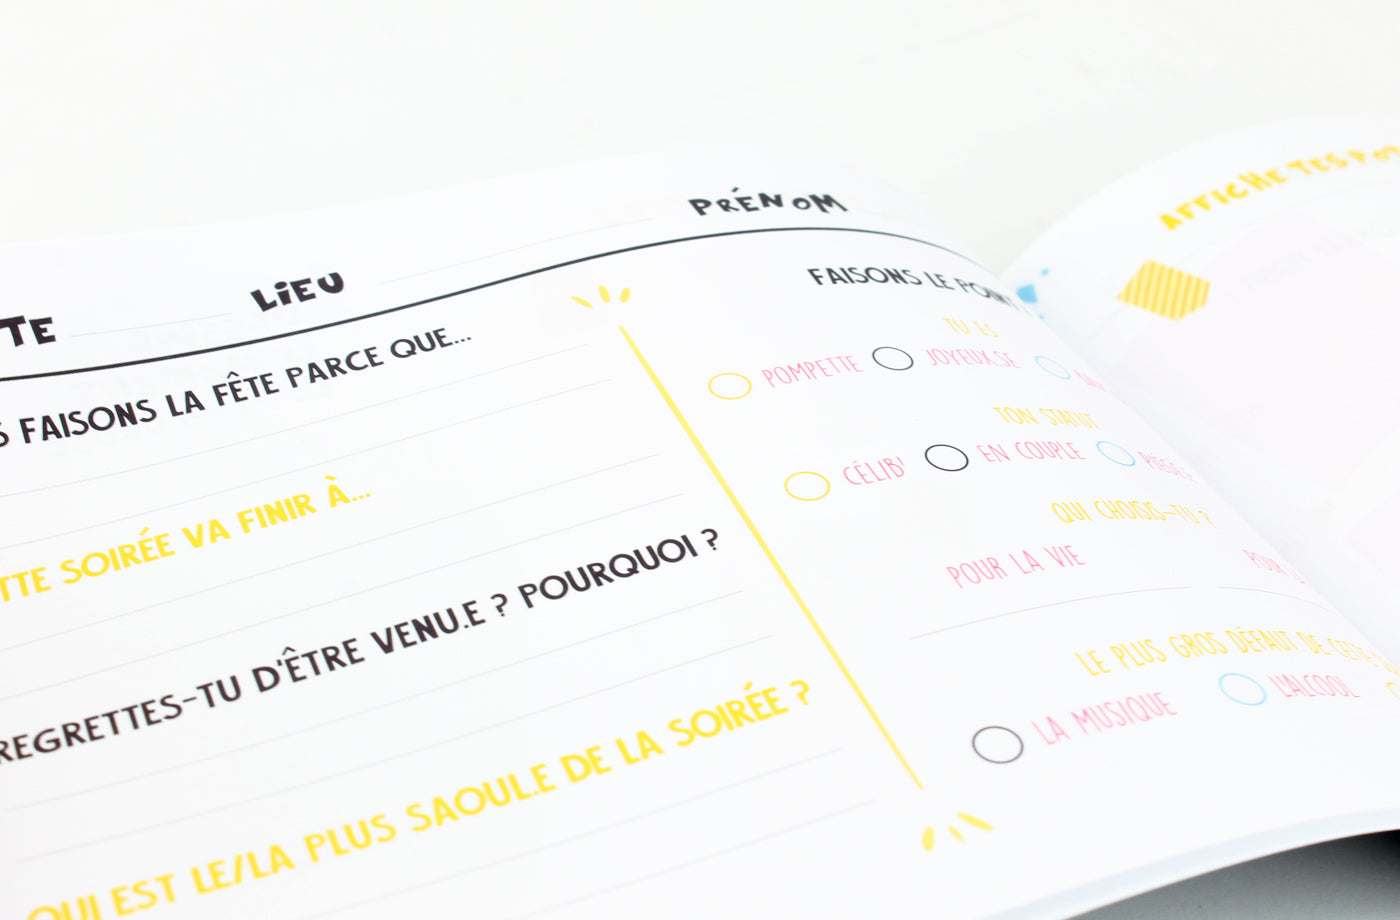 TE LIEU PRÉNOM
FAISONS LA FÊTE PARCE QUE...
SOIRÉE VA FINIR À...
REGRETTES-TU D'ÊTRE VENU.E ? POURQUOI ?
QUI EST LE/LA PLUS SAOUL.E DE LA SOIRÉE ?
FAISONS LE POINT
TU ES
POMPETTE JOYEUX.SE
TON STATUT
CÉLIB' EN COUPLE
QUI CHOISIS-TU ?
POUR LA VIE POUR
LE PLUS GROS DÉFAUT DE CETTE
LA MUSIQUE L'ALCOOL
AFFICHE TES